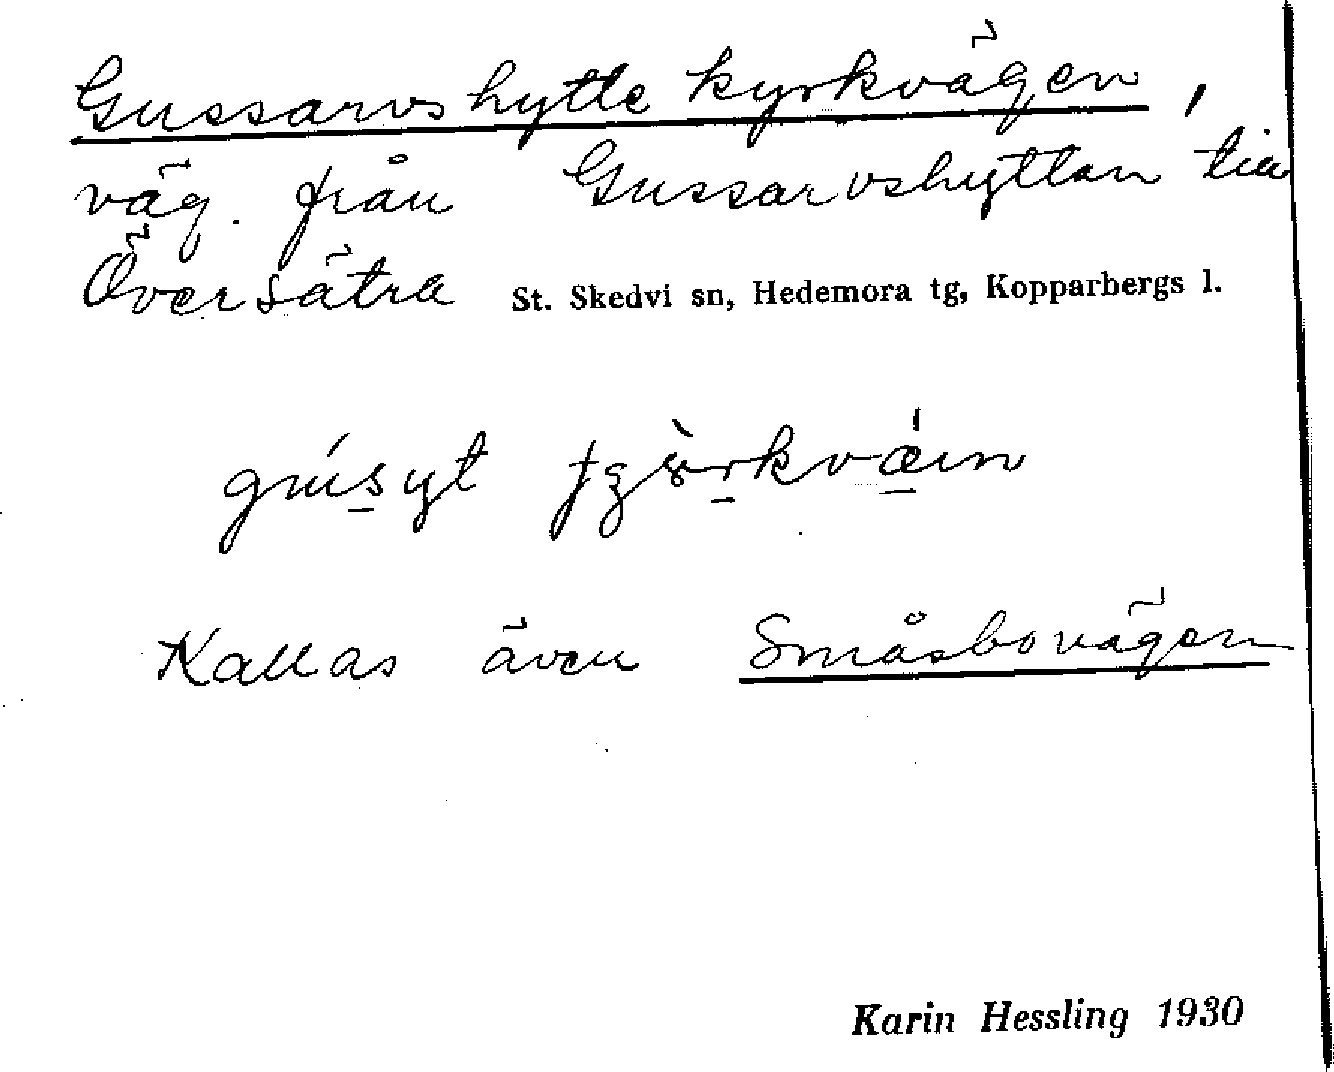 Gussarvshytte kyrkvägen,
väg från Gussarvshyttan till
Översätra St. Skedvi sn, Hedemora tg, Kopparbergs l.
Kallas även Småsbovägen
Karin Hessling 1930